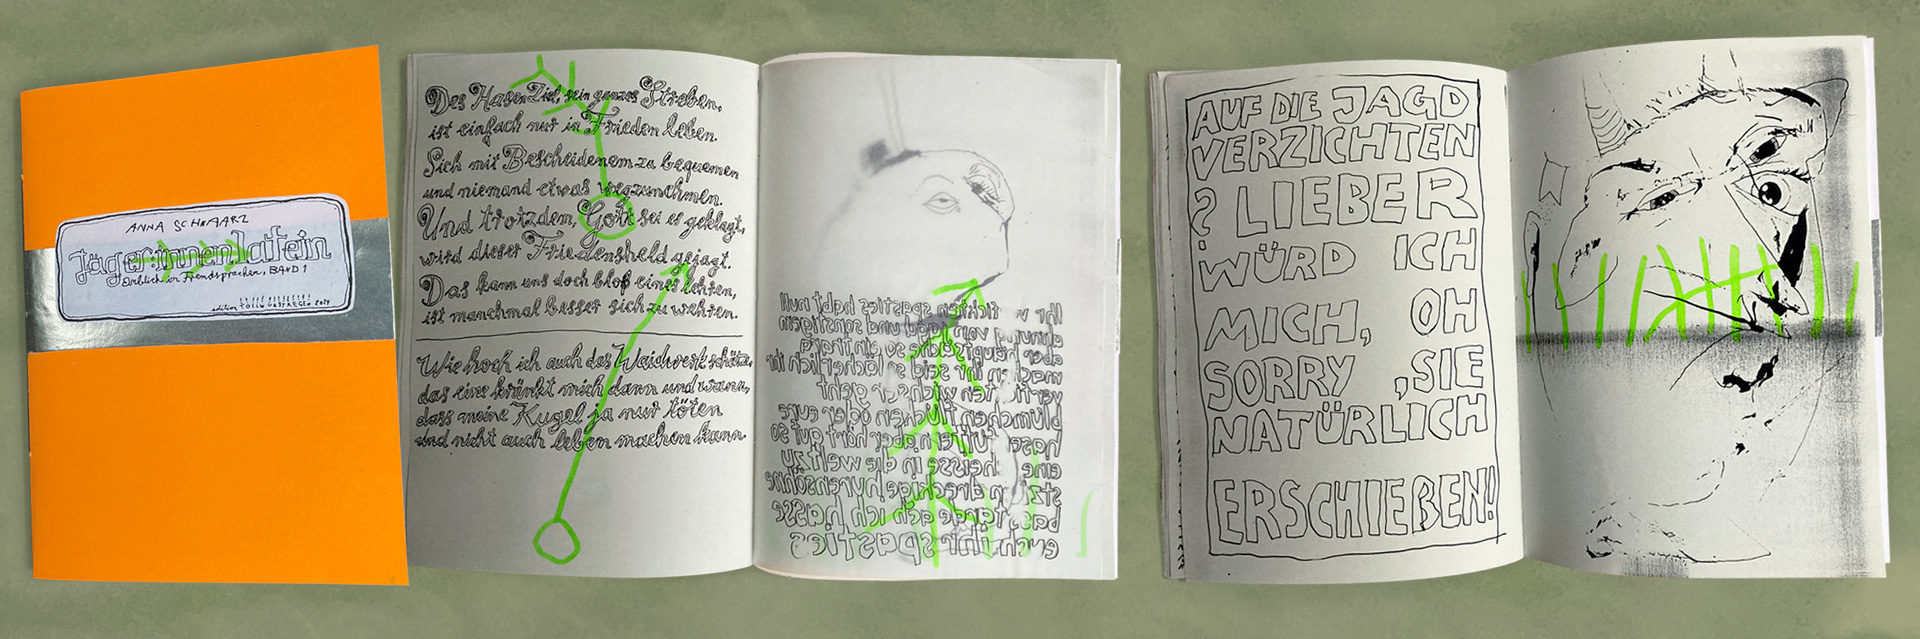 ANNA SCHWAARZ
Jäger:innenlatein
Einblick in Fremdsprachen, BAND 1
edition 2024
Des Hasen Ziel, sein ganzes Streben,
ist einfach nur in Frieden leben.
Sich mit Bescheidenem zu bequemen
und niemand etwas wegzunehmen.
Und trotzdem, Gott sei es geklagt,
wird dieser Friedensheld gejagt.
Das kann uns doch bloß eines lehren,
ist manchmal besser sich zu wehren.
Wie hoch ich auch das Waidwerk schätze,
das eine kränkt mich dann und wann,
dass meine Kugel ja nur töten
und nicht auch leben machen kann.
Ihr fickten spasties habt null
ahnung von jagd und sonstigem
aber hauptsache so ein trara
machen ihr seid so lächerlich ihr
wichser geht
blümchen flücken oder eure
hasen füttern aber hört auf so
eine heisse in die welt zu
dreckige hurensöhne
ich hasse
euch ihr spasties
AUF DIE JAGD
VERZICHTEN
? LIEBER
WÜRD ICH
MICH, OH
SORRY ,SIE
NATÜRLICH
ERSCHIEßEN!